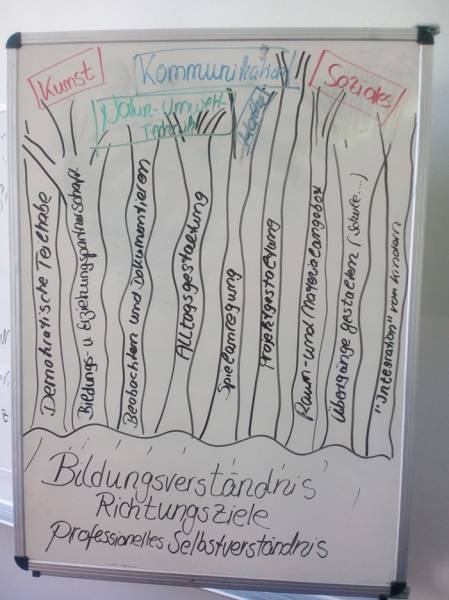 Kunst
Kommunikation
Soziales
Natur-Umwelt-
Technik
Mathe
Demokratische Teilhabe
Bildungs- u Erziehungspartnerschaft
Beobachten und Dokumentieren
Alltagsgestaltung
Spielanregung
Projektgestaltung
Raum- und Materialangebot
Übergänge gestalten (Schule....)
"Integration" von Kindern
Bildungsverständnis
Richtungsziele
Professionelles Selbstverständnis